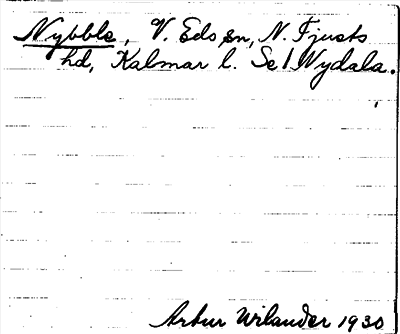 Nybble, V. Eds sn, N. Tjusts
hd, Kalmar l. Se/Nydala.
Artur Wilander 1930